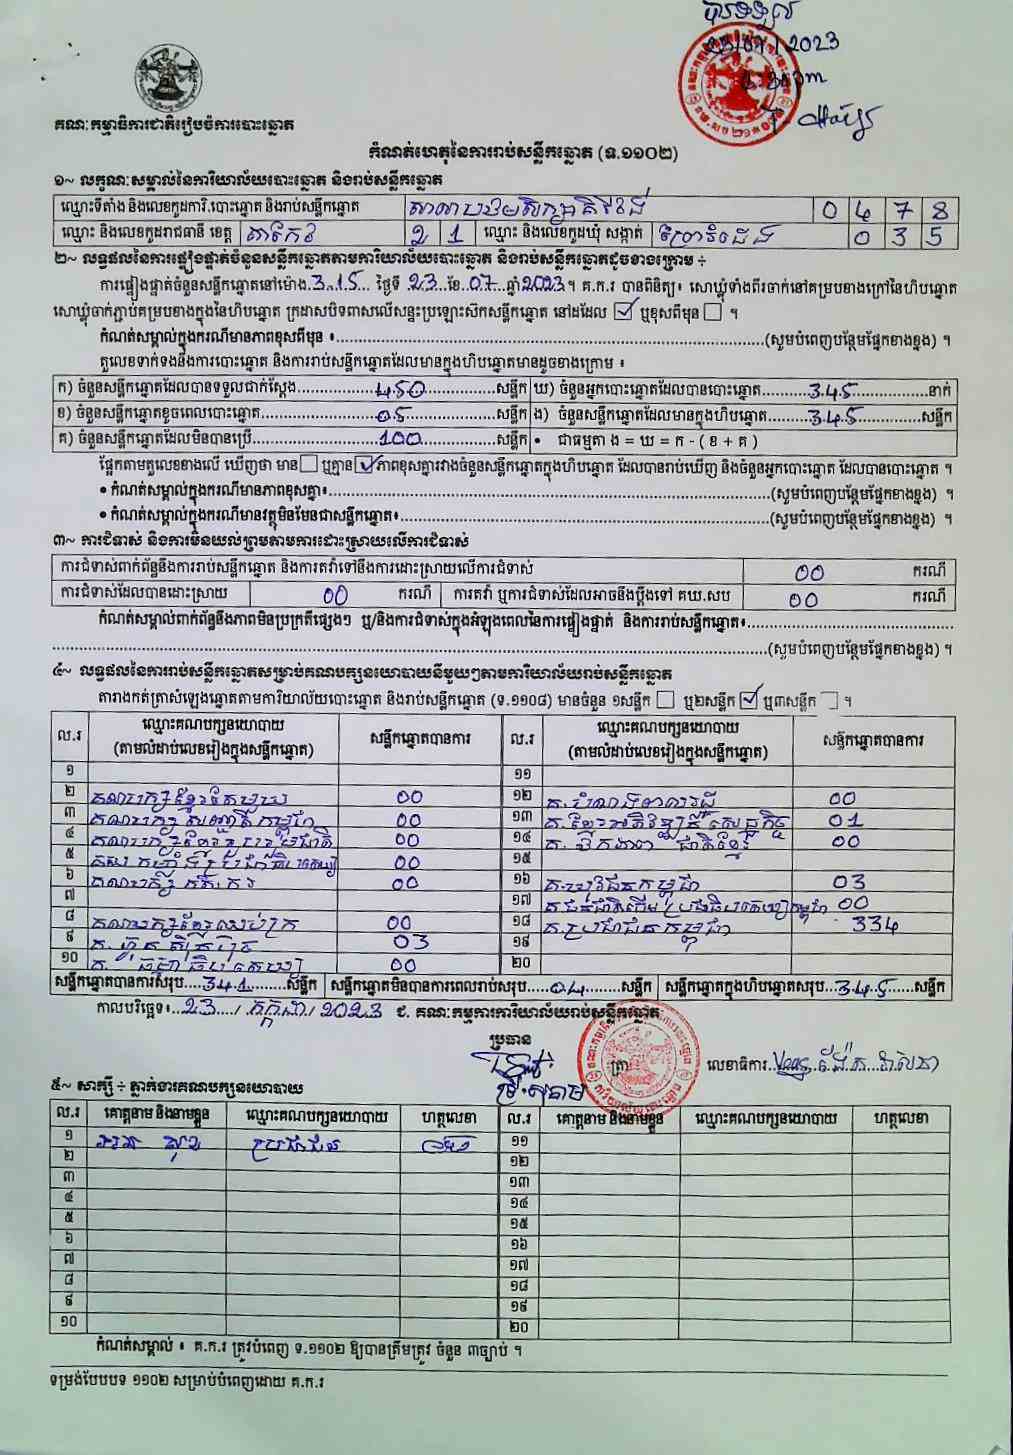 បានទទួល
23/07/2023
គណៈកម្មាធិការជាតិរៀបចំការបោះឆ្នោត
កំណត់ហេតុនៃការរាប់សន្លឹកឆ្នោត (ទ.១១០២)
១~ លក្ខណៈសម្គាល់នៃការិយាល័យបោះឆ្នោត និងរាប់សន្លឹកឆ្នោត
ឈ្មោះទីតាំង និងលេខកូដការិ.បោះឆ្នោត និងរាប់សន្លឹកឆ្នោត សាលាបឋមសិក្សាគិរីវង់ 0 4 7 8
ឈ្មោះ និងលេខកូដរាជធានី ខេត្ត តាកែវ 2 1 ឈ្មោះ និងលេខកូដឃុំ សង្កាត់ ព្រៃរំដេង 0 3 5
២~ លទ្ធផលនៃការផ្ទៀងផ្ទាត់ចំនួនសន្លឹកឆ្នោតតាមការិយាល័យបោះឆ្នោត និងរាប់សន្លឹកឆ្នោតដូចខាងក្រោម ÷
ការផ្ទៀងផ្ទាត់ចំនួនសន្លឹកឆ្នោតនៅម៉ោង 3.15 ថ្ងៃទី 23 ខែ 07 ឆ្នាំ 2023 ។ គ.ក.រ បានពិនិត្យ៖ សោឃ្លុំទាំងពីរចាក់នៅគម្របខាងក្រៅនៃហិបឆ្នោត
សោឃ្លុំចាក់ភ្ជាប់គម្របខាងក្នុងនៃហិបឆ្នោត ក្រដាសបិទពាសលើសន្ទះប្រឡោះស៊កសន្លឹកឆ្នោត នៅដដែល ☑ ឬខុសពីមុន ☐ ។
កំណត់សម្គាល់ក្នុងករណីមានភាពខុសពីមុន ៖ (សូមបំពេញបន្ថែមផ្នែកខាងខ្នង) ។
តួលេខទាក់ទងនឹងការបោះឆ្នោត និងការរាប់សន្លឹកឆ្នោតដែលមានក្នុងហិបឆ្នោតមានដូចខាងក្រោម ៖
ក) ចំនួនសន្លឹកឆ្នោតដែលបានទទួលជាក់ស្តែង 450 សន្លឹក ឃ) ចំនួនអ្នកបោះឆ្នោតដែលបានបោះឆ្នោត 345 នាក់
ខ) ចំនួនសន្លឹកឆ្នោតខូចពេលបោះឆ្នោត 05 សន្លឹក ង) ចំនួនសន្លឹកឆ្នោតដែលមានក្នុងហិបឆ្នោត 345 សន្លឹក
គ) ចំនួនសន្លឹកឆ្នោតដែលមិនបានប្រើ 100 សន្លឹក • ជាធម្មតា ង = ឃ = ក - ( ខ + គ )
ផ្អែកតាមតួលេខខាងលើ ឃើញថា មាន ☐ ឬគ្មាន ☑ ភាពខុសគ្នារវាងចំនួនសន្លឹកឆ្នោតក្នុងហិបឆ្នោត ដែលបានរាប់ឃើញ និងចំនួនអ្នកបោះឆ្នោត ដែលបានបោះឆ្នោត ។
• កំណត់សម្គាល់ក្នុងករណីមានភាពខុសគ្នា៖ (សូមបំពេញបន្ថែមផ្នែកខាងខ្នង) ។
• កំណត់សម្គាល់ក្នុងករណីមានវត្ថុមិនមែនជាសន្លឹកឆ្នោត៖ (សូមបំពេញបន្ថែមផ្នែកខាងខ្នង) ។
៣~ ការជំទាស់ និងការមិនយល់ព្រមតាមការដោះស្រាយលើការជំទាស់
ការជំទាស់ពាក់ព័ន្ធនឹងការរាប់សន្លឹកឆ្នោត និងការតវ៉ាទៅនឹងការដោះស្រាយលើការជំទាស់ 00 ករណី
ការជំទាស់ដែលបានដោះស្រាយ 00 ករណី ការតវ៉ា ឬការជំទាស់ដែលអាចនឹងប្តឹងទៅ គឃ.សប 00 ករណី
កំណត់សម្គាល់ពាក់ព័ន្ធនឹងភាពមិនប្រក្រតីផ្សេងៗ ឬ/និងការជំទាស់ក្នុងអំឡុងពេលនៃការផ្ទៀងផ្ទាត់ និងការរាប់សន្លឹកឆ្នោត៖
(សូមបំពេញបន្ថែមផ្នែកខាងខ្នង) ។
៤~ លទ្ធផលនៃការរាប់សន្លឹកឆ្នោតសម្រាប់គណបក្សនយោបាយនីមួយៗតាមការិយាល័យរាប់សន្លឹកឆ្នោត
តារាងកត់ត្រាសំឡេងឆ្នោតតាមការិយាល័យបោះឆ្នោត និងរាប់សន្លឹកឆ្នោត (ទ.១១០៨) មានចំនួន ១សន្លឹក ☐ ឬ២សន្លឹក ☑ ឬ៣សន្លឹក ☐ ។
ល.រ ឈ្មោះគណបក្សនយោបាយ (តាមលំដាប់លេខរៀងក្នុងសន្លឹកឆ្នោត) សន្លឹកឆ្នោតបានការ ល.រ ឈ្មោះគណបក្សនយោបាយ (តាមលំដាប់លេខរៀងក្នុងសន្លឹកឆ្នោត) សន្លឹកឆ្នោតបានការ
១ ១១
២ គណបក្សខ្មែរតែមួយ 00 ១២ 00
៣ គណបក្សសញ្ជាតិកម្ពុជា 00 ១៣ គ.ខ្មែរអភិវឌ្ឍន៍សេដ្ឋកិច្ច 01
៤ គណបក្សខ្មែររួបរួមជាតិ 00 ១៤ គ. ជាតិខ្មែរ 00
៥ 00 ១៥
៦ គណបក្ស កសិករ 00 ១៦ គ.យុវជនកម្ពុជា 03
៧ ១៧ គ.ជនជាតិដើមប្រជាធិបតេយ្យកម្ពុជា 00
៨ គណបក្សខ្មែរឈប់ក្រ 00 ១៨ គ.ប្រជាជនកម្ពុជា 334
៩ គ. ហ៊្វុនស៊ិនប៉ិច 03 ១៩
១០ 00 ២០
សន្លឹកឆ្នោតបានការសរុប 341 សន្លឹក សន្លឹកឆ្នោតមិនបានការពេលរាប់សរុប 04 សន្លឹក សន្លឹកឆ្នោតក្នុងហិបឆ្នោតសរុប 345 សន្លឹក
កាលបរិច្ឆេទ៖ 23 / កក្កដា / 2023 ជ. គណៈកម្មការការិយាល័យរាប់សន្លឹកឆ្នោត
ប្រធាន
ត្រា
លេខាធិការ
៥~ សាក្សី ÷ ភ្នាក់ងារគណបក្សនយោបាយ
ល.រ គោត្តនាម និងនាមខ្លួន ឈ្មោះគណបក្សនយោបាយ ហត្ថលេខា ល.រ គោត្តនាម និងនាមខ្លួន ឈ្មោះគណបក្សនយោបាយ ហត្ថលេខា
១ ប្រជាជន ១១
២ ១២
៣ ១៣
៤ ១៤
៥ ១៥
៦ ១៦
៧ ១៧
៨ ១៨
៩ ១៩
១០ ២០
កំណត់សម្គាល់ ៖ គ.ក.រ ត្រូវបំពេញ ទ.១១០២ ឱ្យបានត្រឹមត្រូវ ចំនួន ៣ច្បាប់ ។
ទម្រង់បែបបទ ១១០២ សម្រាប់បំពេញដោយ គ.ក.រ